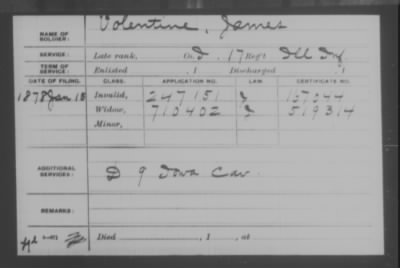 NAME OF SOLDIER: Volentine, James
SERVICE: Late rank, Co. D, 17 Reg't Ill Inf
TERM OF SERVICE: Enlisted , 1 Discharged , 1
DATE OF FILING. CLASS. APPLICATION NO. LAW. CERTIFICATE NO.
1878 Jan 18 Invalid, 247151 157044
Widow, 710402 519314
Minor,
ADDITIONAL SERVICES: D 9 Iowa Cav
REMARKS:
Died , 1 , at